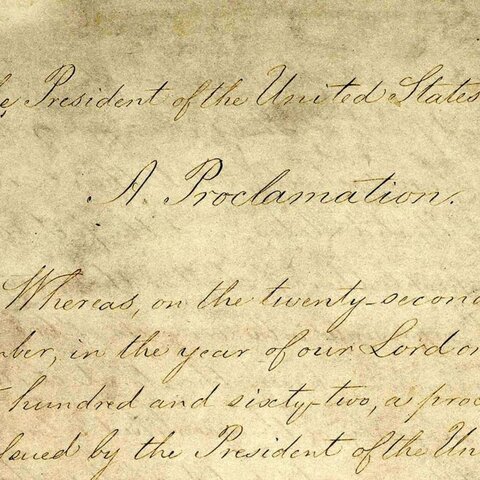 he President of the United States
A Proclamation.
Whereas, on the twenty-second
ber, in the year of our Lord on
hundred and sixty-two, a proc
issued by the President of the Un